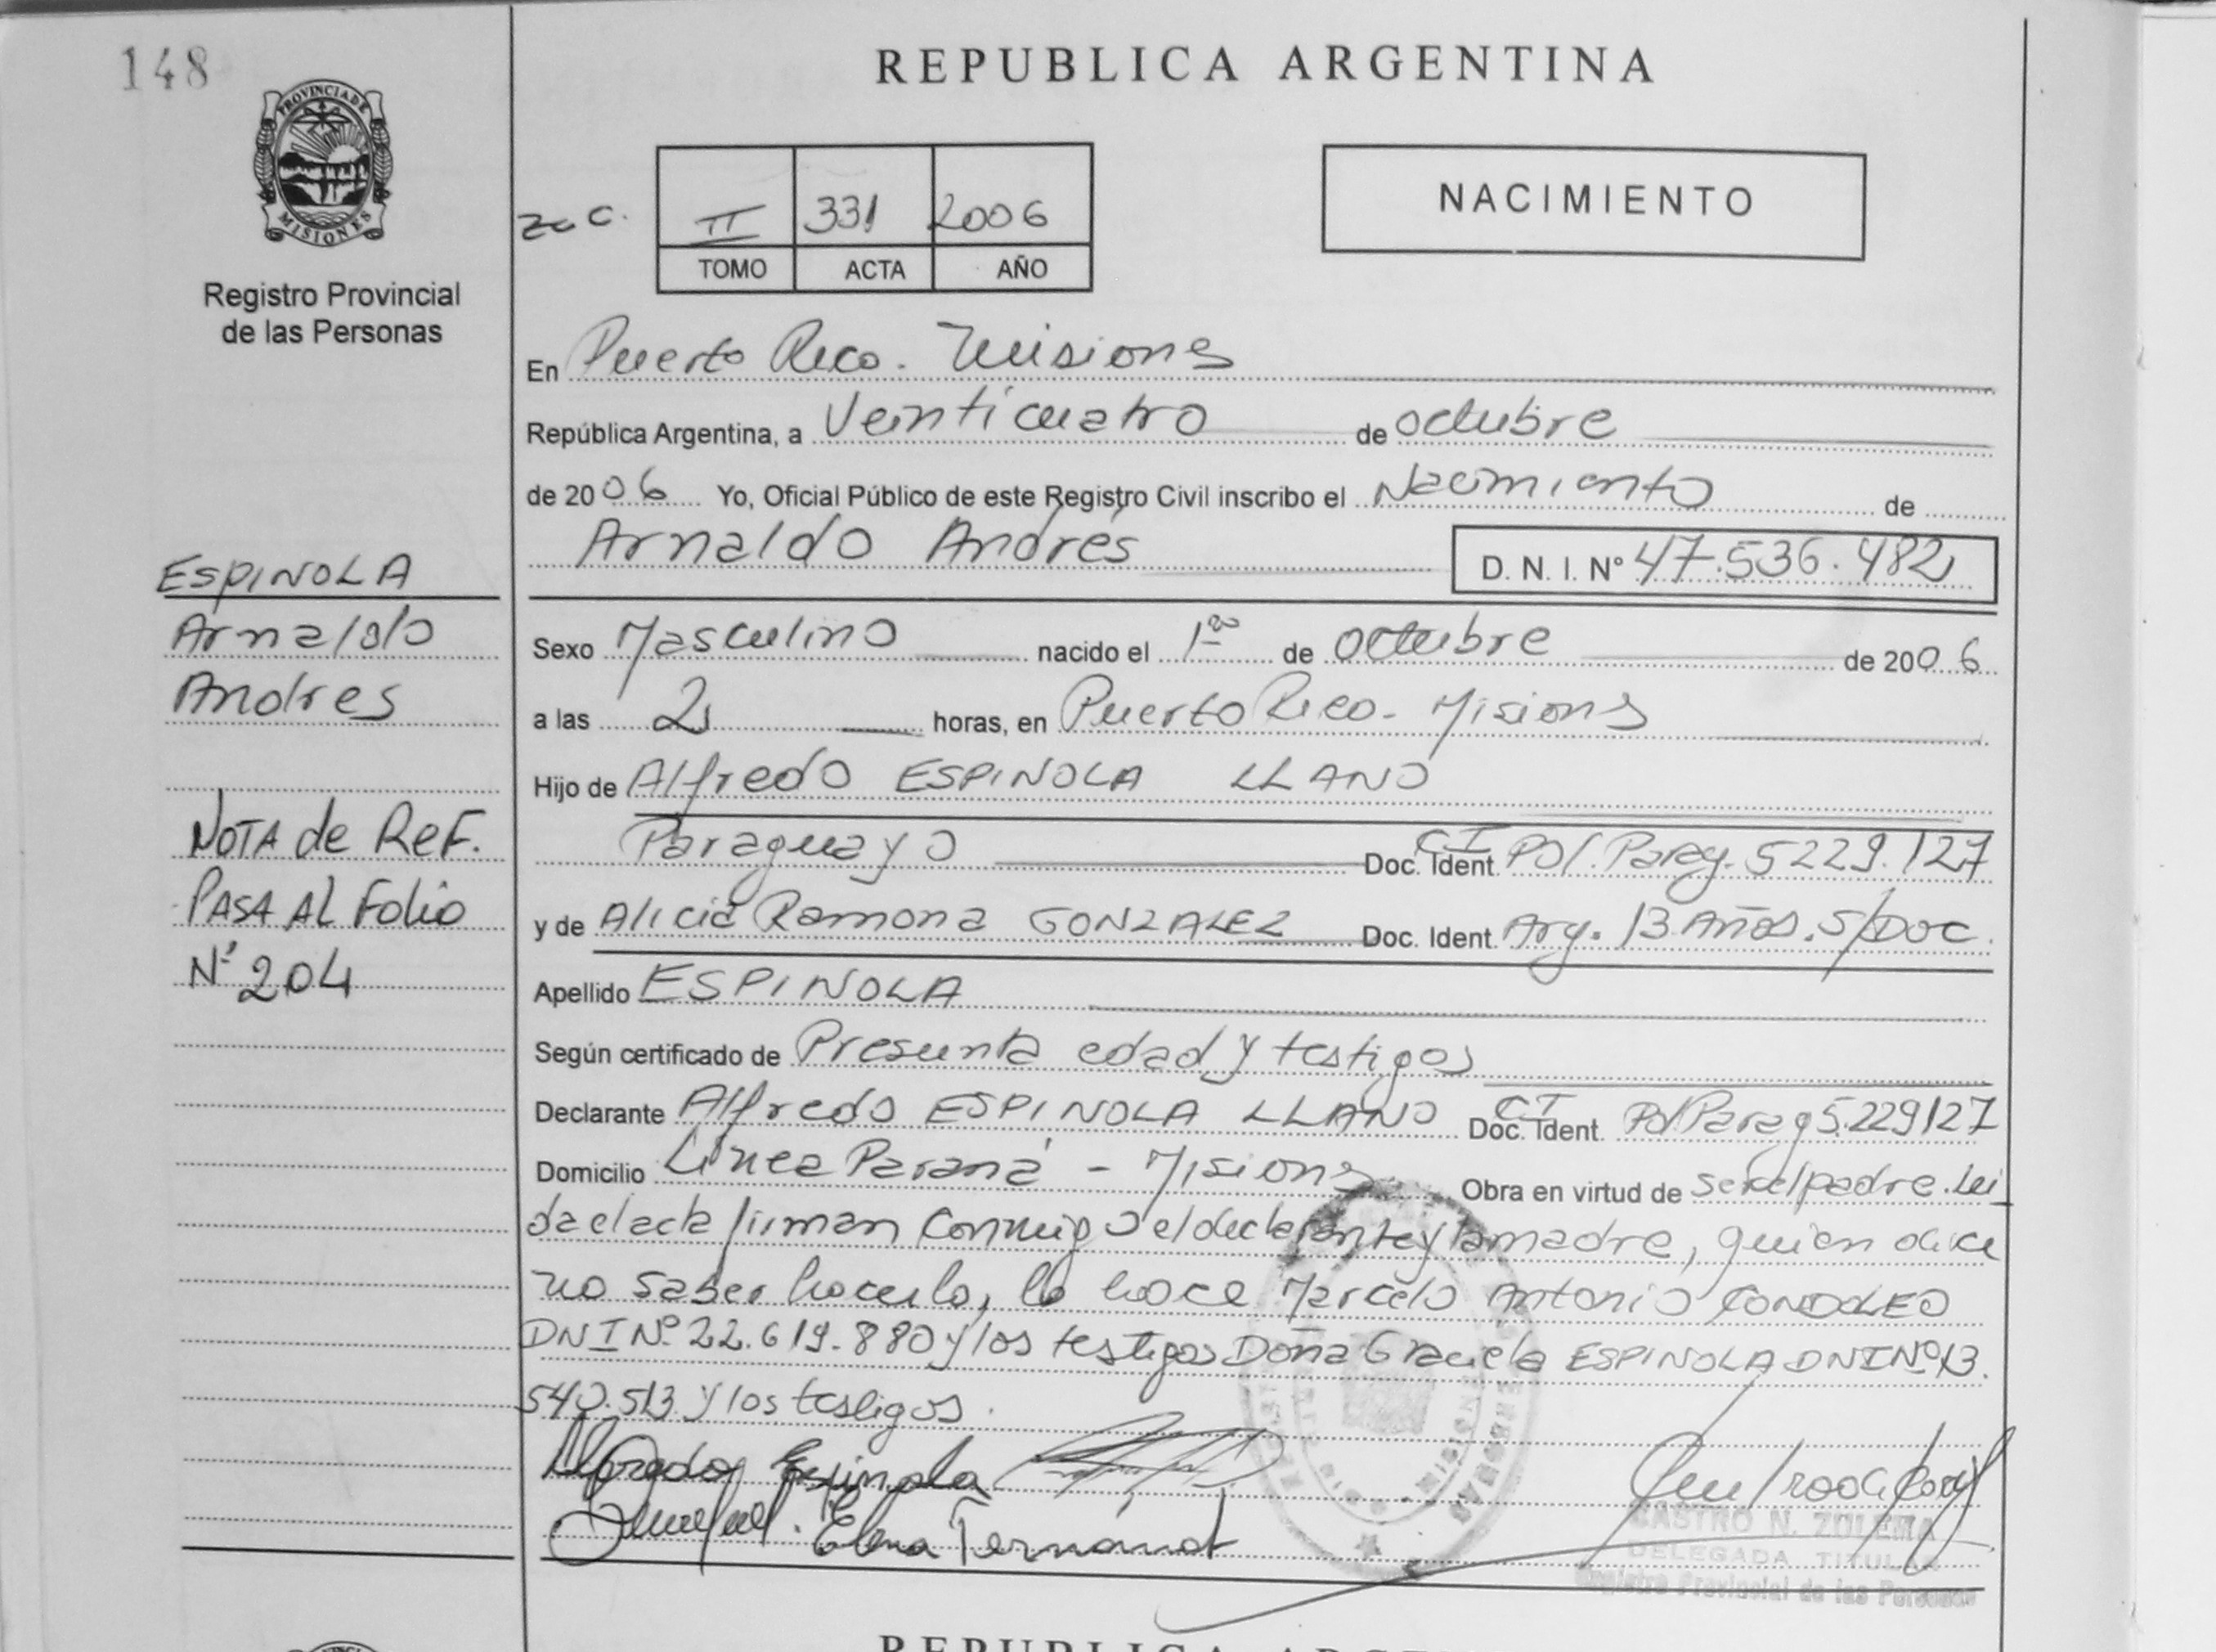 148
REPUBLICA ARGENTINA
PROVINCIA DE
MISIONES
Registro Provincial
de las Personas
II 331 2006
TOMO ACTA AÑO
NACIMIENTO
En Puerto Rico. Misiones
República Argentina, a Veinticuatro de octubre
de 2006 Yo, Oficial Público de este Registro Civil inscribo el Nacimiento de
Arnaldo Andrés D. N. I. N° 47.536.482
ESPINOLA
Arnaldo
Andres
Sexo Masculino nacido el 1ro de octubre de 2006
a las 2 horas, en Puerto Rico - Misiones
Hijo de Alfredo ESPINOLA LLANO
Paraguayo Doc. Ident. CI Pol. Parag. 5229.127
y de Alicia Ramona GONZALEZ Doc. Ident. Arg. 13 Años. S/DOC.
NOTA de REF.
PASA AL Folio
N° 204
Apellido ESPINOLA
Según certificado de Presunta edad y testigos
Declarante Alfredo ESPINOLA LLANO Doc. Ident. CI Pol Parag 5.229127
Domicilio Línea Paraná - Misiones Obra en virtud de ser el padre. Lei
da el acta firman conmigo el declarante y la madre, quien dice
no saber hacerlo, lo hace Marcelo Antonio CONDOLEO
DNI N° 22.619.880 y los testigos Doña Graciela ESPINOLA DNI N° 13.
540.513 y los testigos.
Espinola
Elena
CASTRO N. ZULEMA
DELEGADA TITULAR
Registro Provincial de las Personas
REPUBLICA